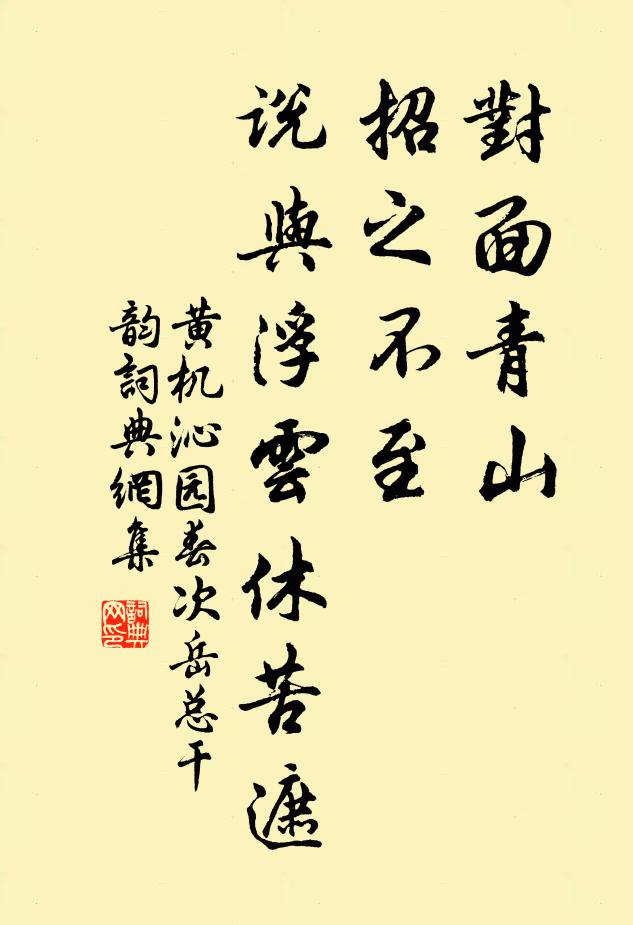 對面青山
招之不至
說與浮雲休苦遮
黄机沁园春次岳总干
韵詞典網集
詞典网印